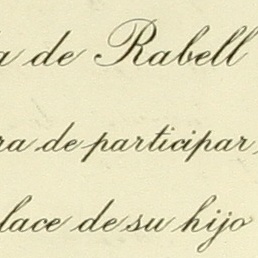 a de Rabell
ra de participar,
lace de su hijo